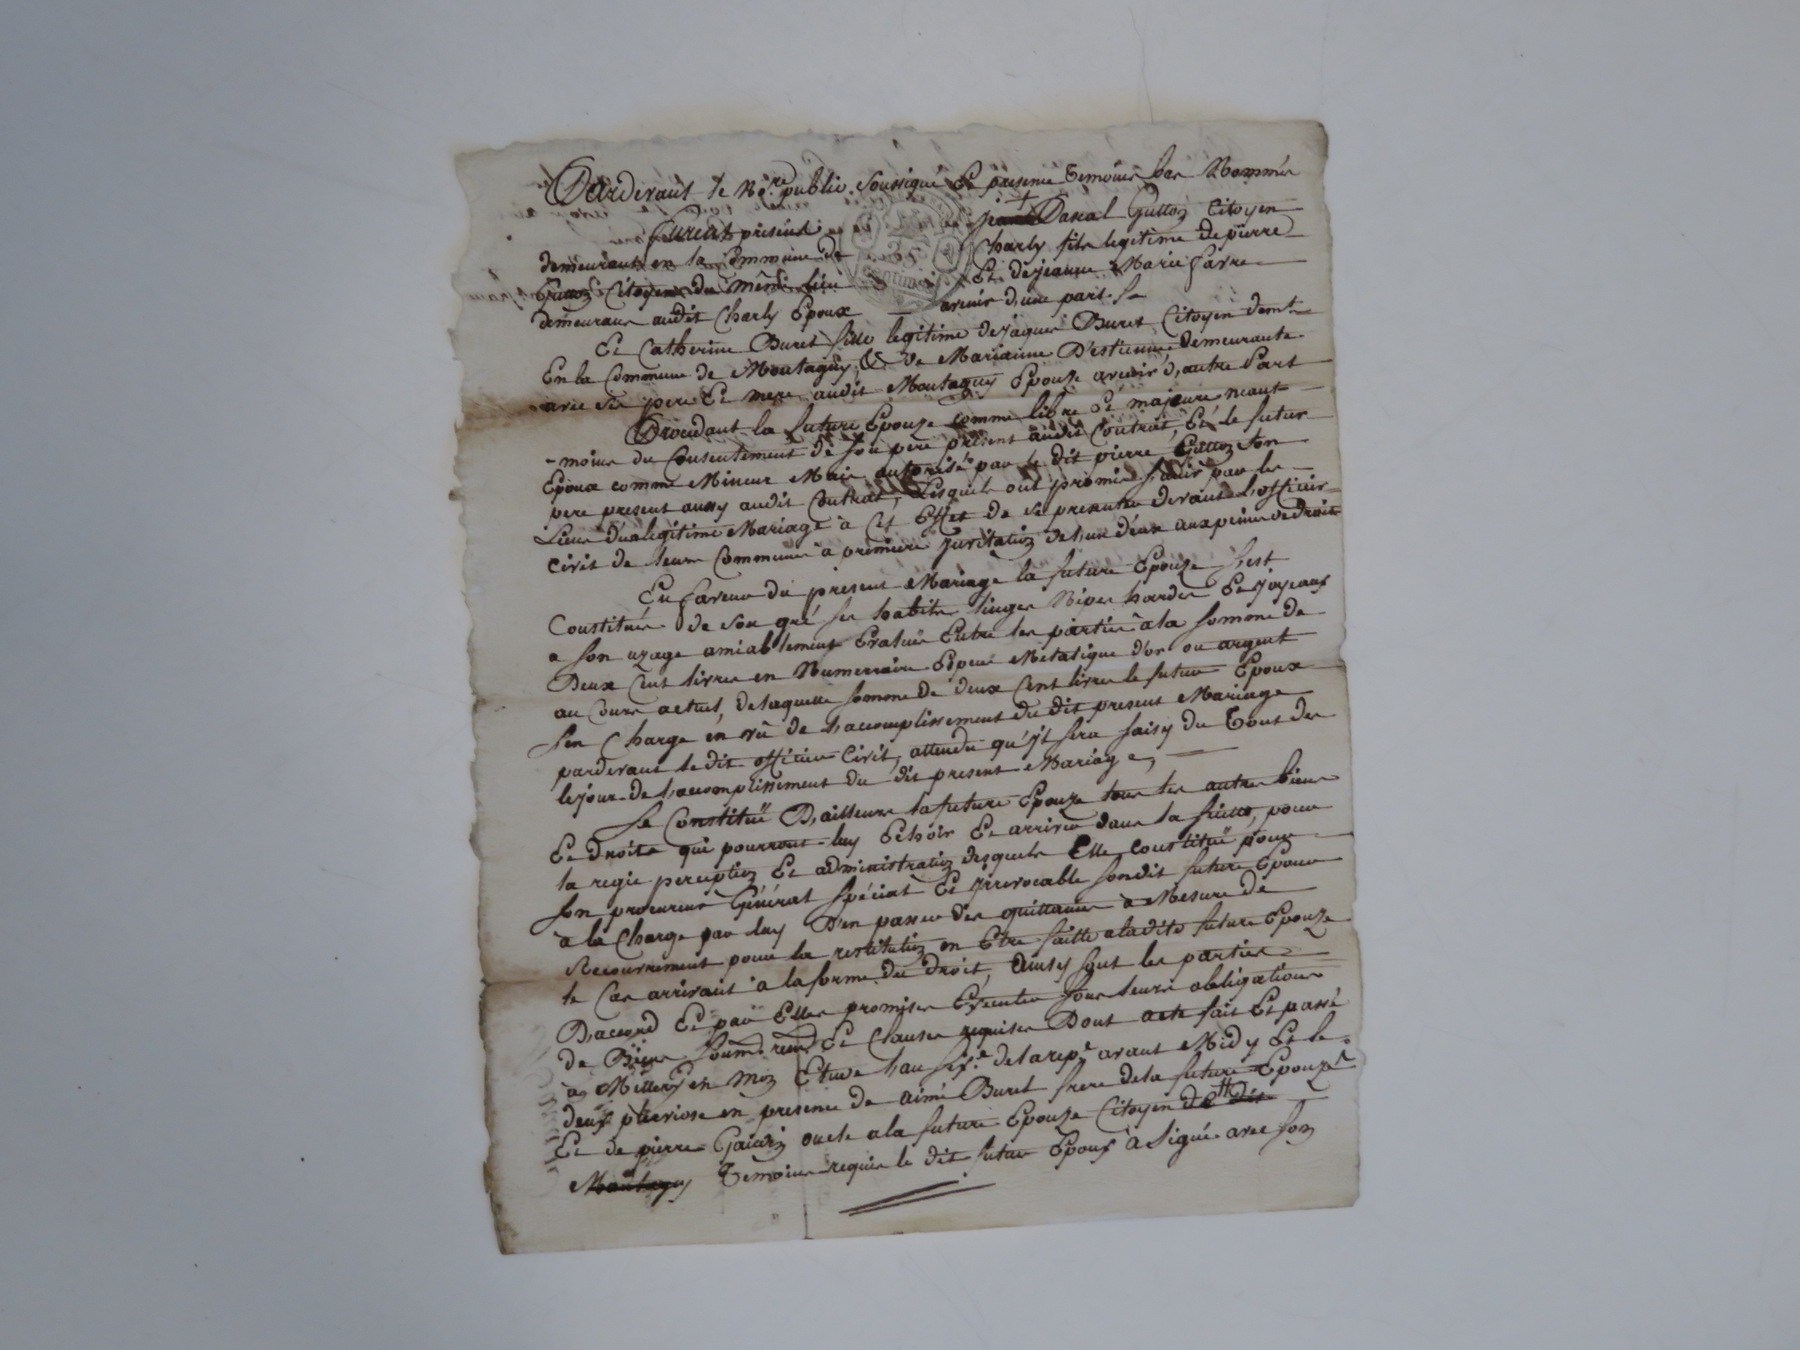 Pardevant le No.re public soussigné Et presence temoins bas Nommés
furent présent jean Pascal Gutton Citoyen
demeurant en la Commune de Charly fils legitime de pierre
Gutton Citoyen du même lieu Et de jeanne Marie favre
demeurans audit Charly Epoux avenir d'une part.
Et Catherine Buret fille legitime de jaques Buret Citoyen demt
En la Commune de Montagny, & de Marianne D'estienne demeurante
avec ses pere Et mere audit Montagny Epouze avenir d'autre Part
Procedant la future Epouze comme libre Et majeure neant
-moins du Consentement de son pere present audit Contrat, Et le futur
Epoux comme Mineur Mais autorisé par le dit pierre Gutton son
pere present aussy audit Contrat, Lesquels ont promis s'unir par les
Liens d'un legitime Mariage à Cet Effet de se presenter devant L'officier
Civil de leurs Communes à premiere jnvitation de l'un d'eux aux peines de droits
En faveur du present Mariage la future Epouze s'est
Constituée de son gré ses habits linges Nipes hardes Et joyeaux
a son uzage amiablement Evalués Entre les parties à la somme de
Deux Cent livres en Numerraire Espece Metalique d'or ou argent
au Cours actuel, de laquelle somme de deux Cent livres le futur Epoux
s'en Charge en vû de l'accomplissement du dit present Mariage
pardevant le dit officier Civil, attendu qu'jl sera saisy du Tout des
le jour de l'accomplissement du dit present Mariage,
Se Constituë D'ailleurs la future Epouze tous les autres biens
Et droits qui pourront luy Echoir Et arriver dans la suitte, pour
la regie perception Et administration desquels Elle Constituë pour
son procureur Général spécial Et jrrevocable son dit futur Epoux
à la Charge par luy D'en passer des quittances à Mesure de
Recouvrement pour la restitution en Etre faitte a ladite future Epouze
le Cas arrivant à la forme du droit, Ainsy sont les parties
D'accord Et par Elles promises Executer sous leurs obligations
de Biens Et Clauses requises Dont acte fait Et passé
à Millery en mon Etude l'an de la rep.e avant Midy Et le
deux pluviose en presence de aimé Buret frere de la future Epouze
Et de pierre oncle a la future Epouze Citoyen
Montagny Temoins requis le dit futur Epoux à signé avec son